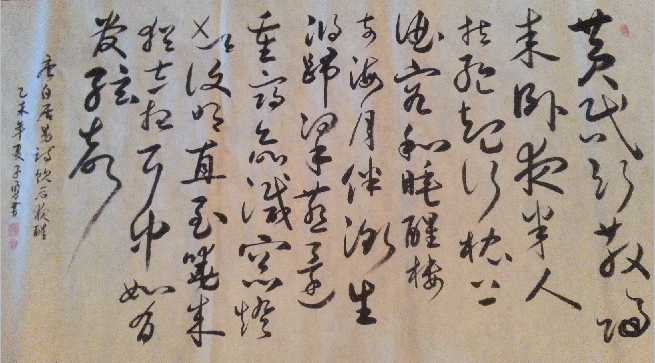 黄昏飲散歸
来卧夜半人
扶強起行枕上
酒容和睡醒楼
前海月伴潮生
將歸梁燕還
重宿欲滅窓燈
却復明直至曉来
猶妄想耳中如有
管弦聲
唐白居易詩飲后夜醒
乙未年夏子書